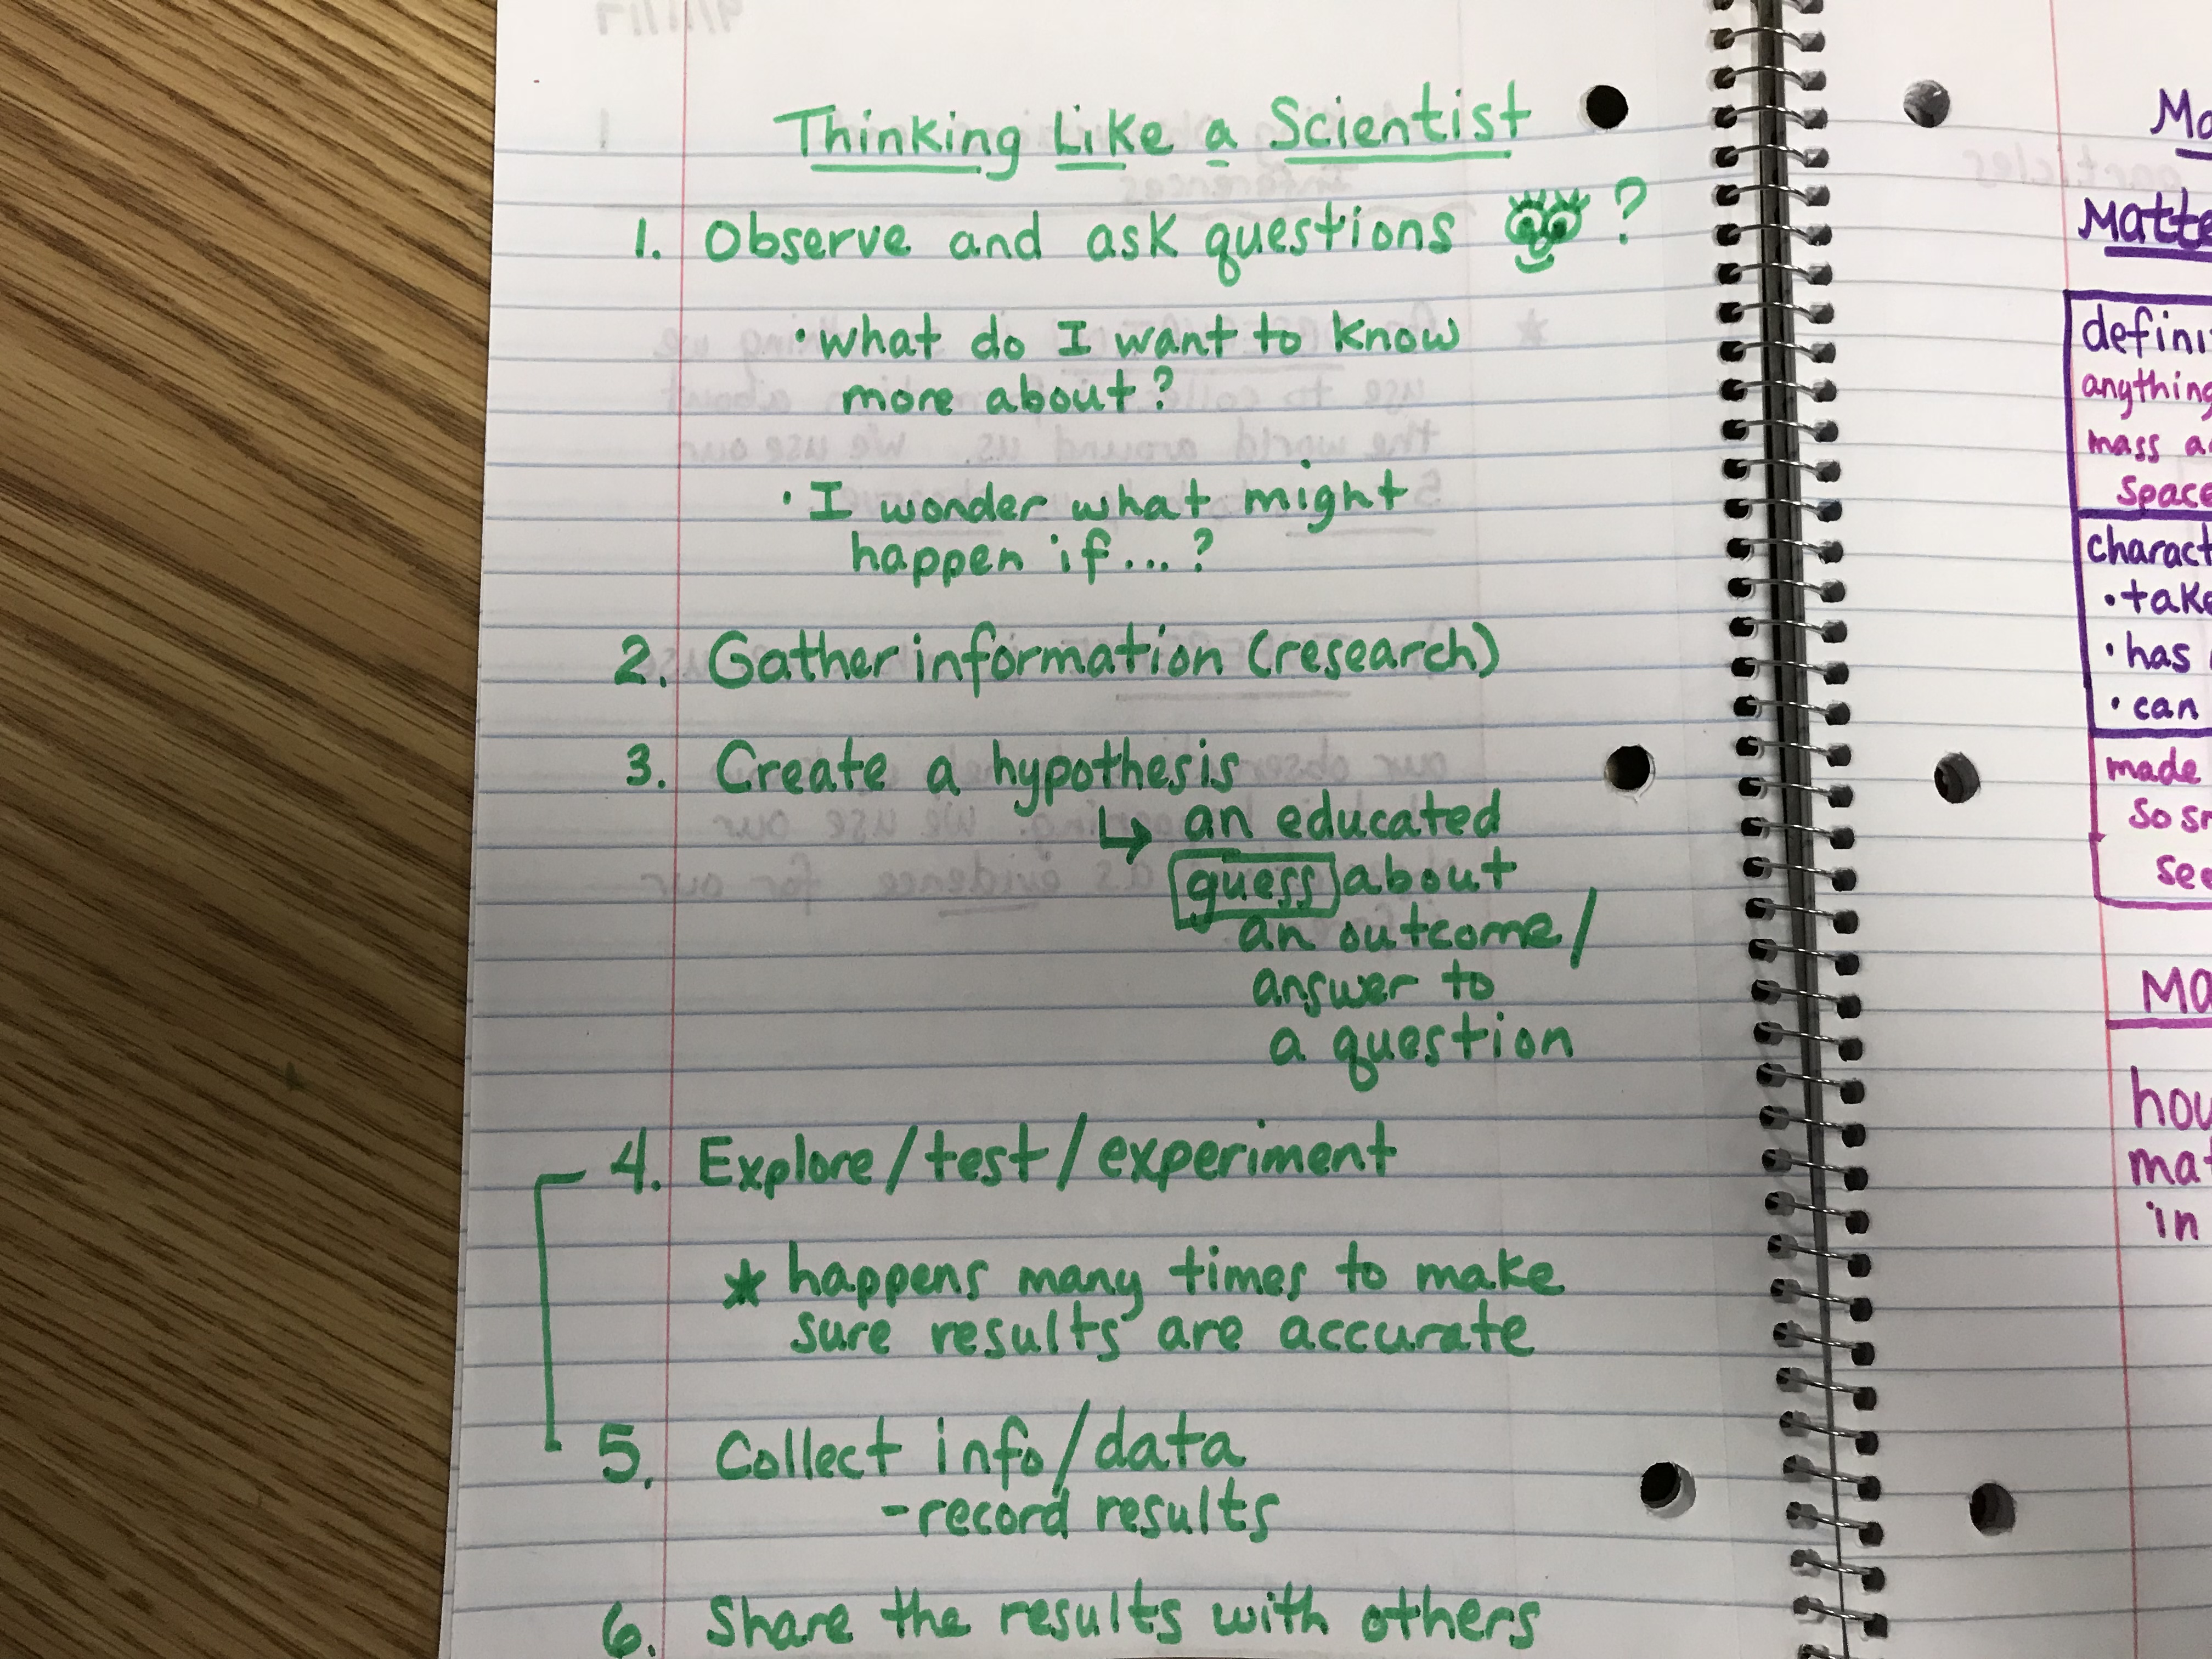 Thinking Like a Scientist
1. Observe and ask questions ?
• what do I want to know
more about?
• I wonder what might
happen if...?
2. Gather information (research)
3. Create a hypothesis
↳ an educated
guess about
an outcome/
answer to
a question
4. Explore/test/experiment
* happens many times to make
sure results are accurate
5. Collect info/data
-record results
6. Share the results with others
anything
mass
space
• take
• has
• can
made
so
in